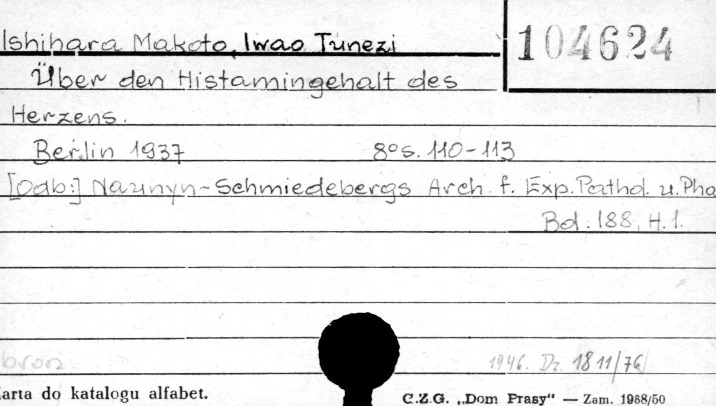 Ishihara Makoto, Iwao Tunezi
104624
Über den Histamingehalt des
Herzens.
Berlin 1937 8°s. 110-113
[Odb:] Naunyn-Schmiedebergs Arch. f. Exp. Pathol. u. Pha
Bd. 188, H. 1.
bron. 1946. Dz. 1811/76
arta do katalogu alfabet.
C.Z.G. „Dom Prasy" — Zam. 1968/50